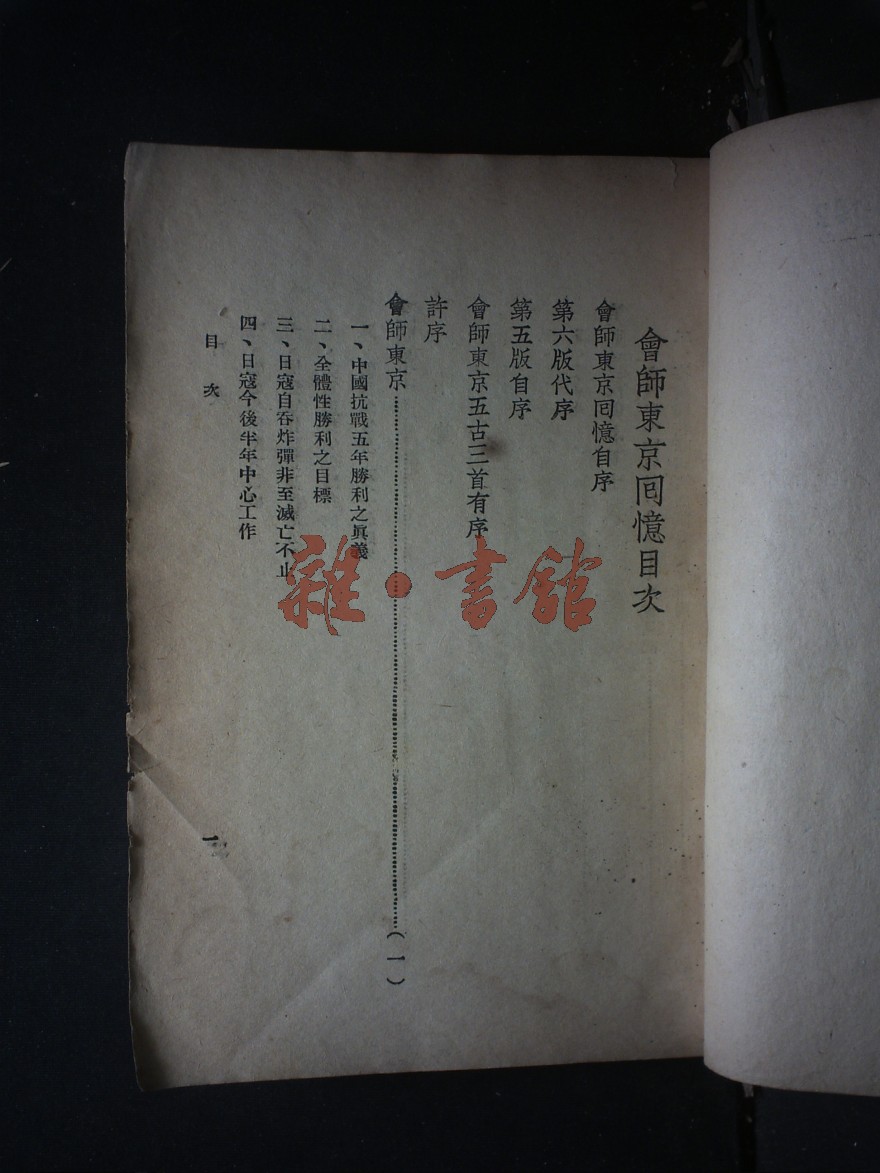 會師東京回憶目次
會師東京回憶自序
第六版代序
第五版自序
會師東京五古三首有序
許序
會師東京……(一)
一、中國抗戰五年勝利之眞義
二、全體性勝利之目標
三、日寇自吞炸彈非至滅亡不止
四、日寇今後半年中心工作
目次
一
雜·書館